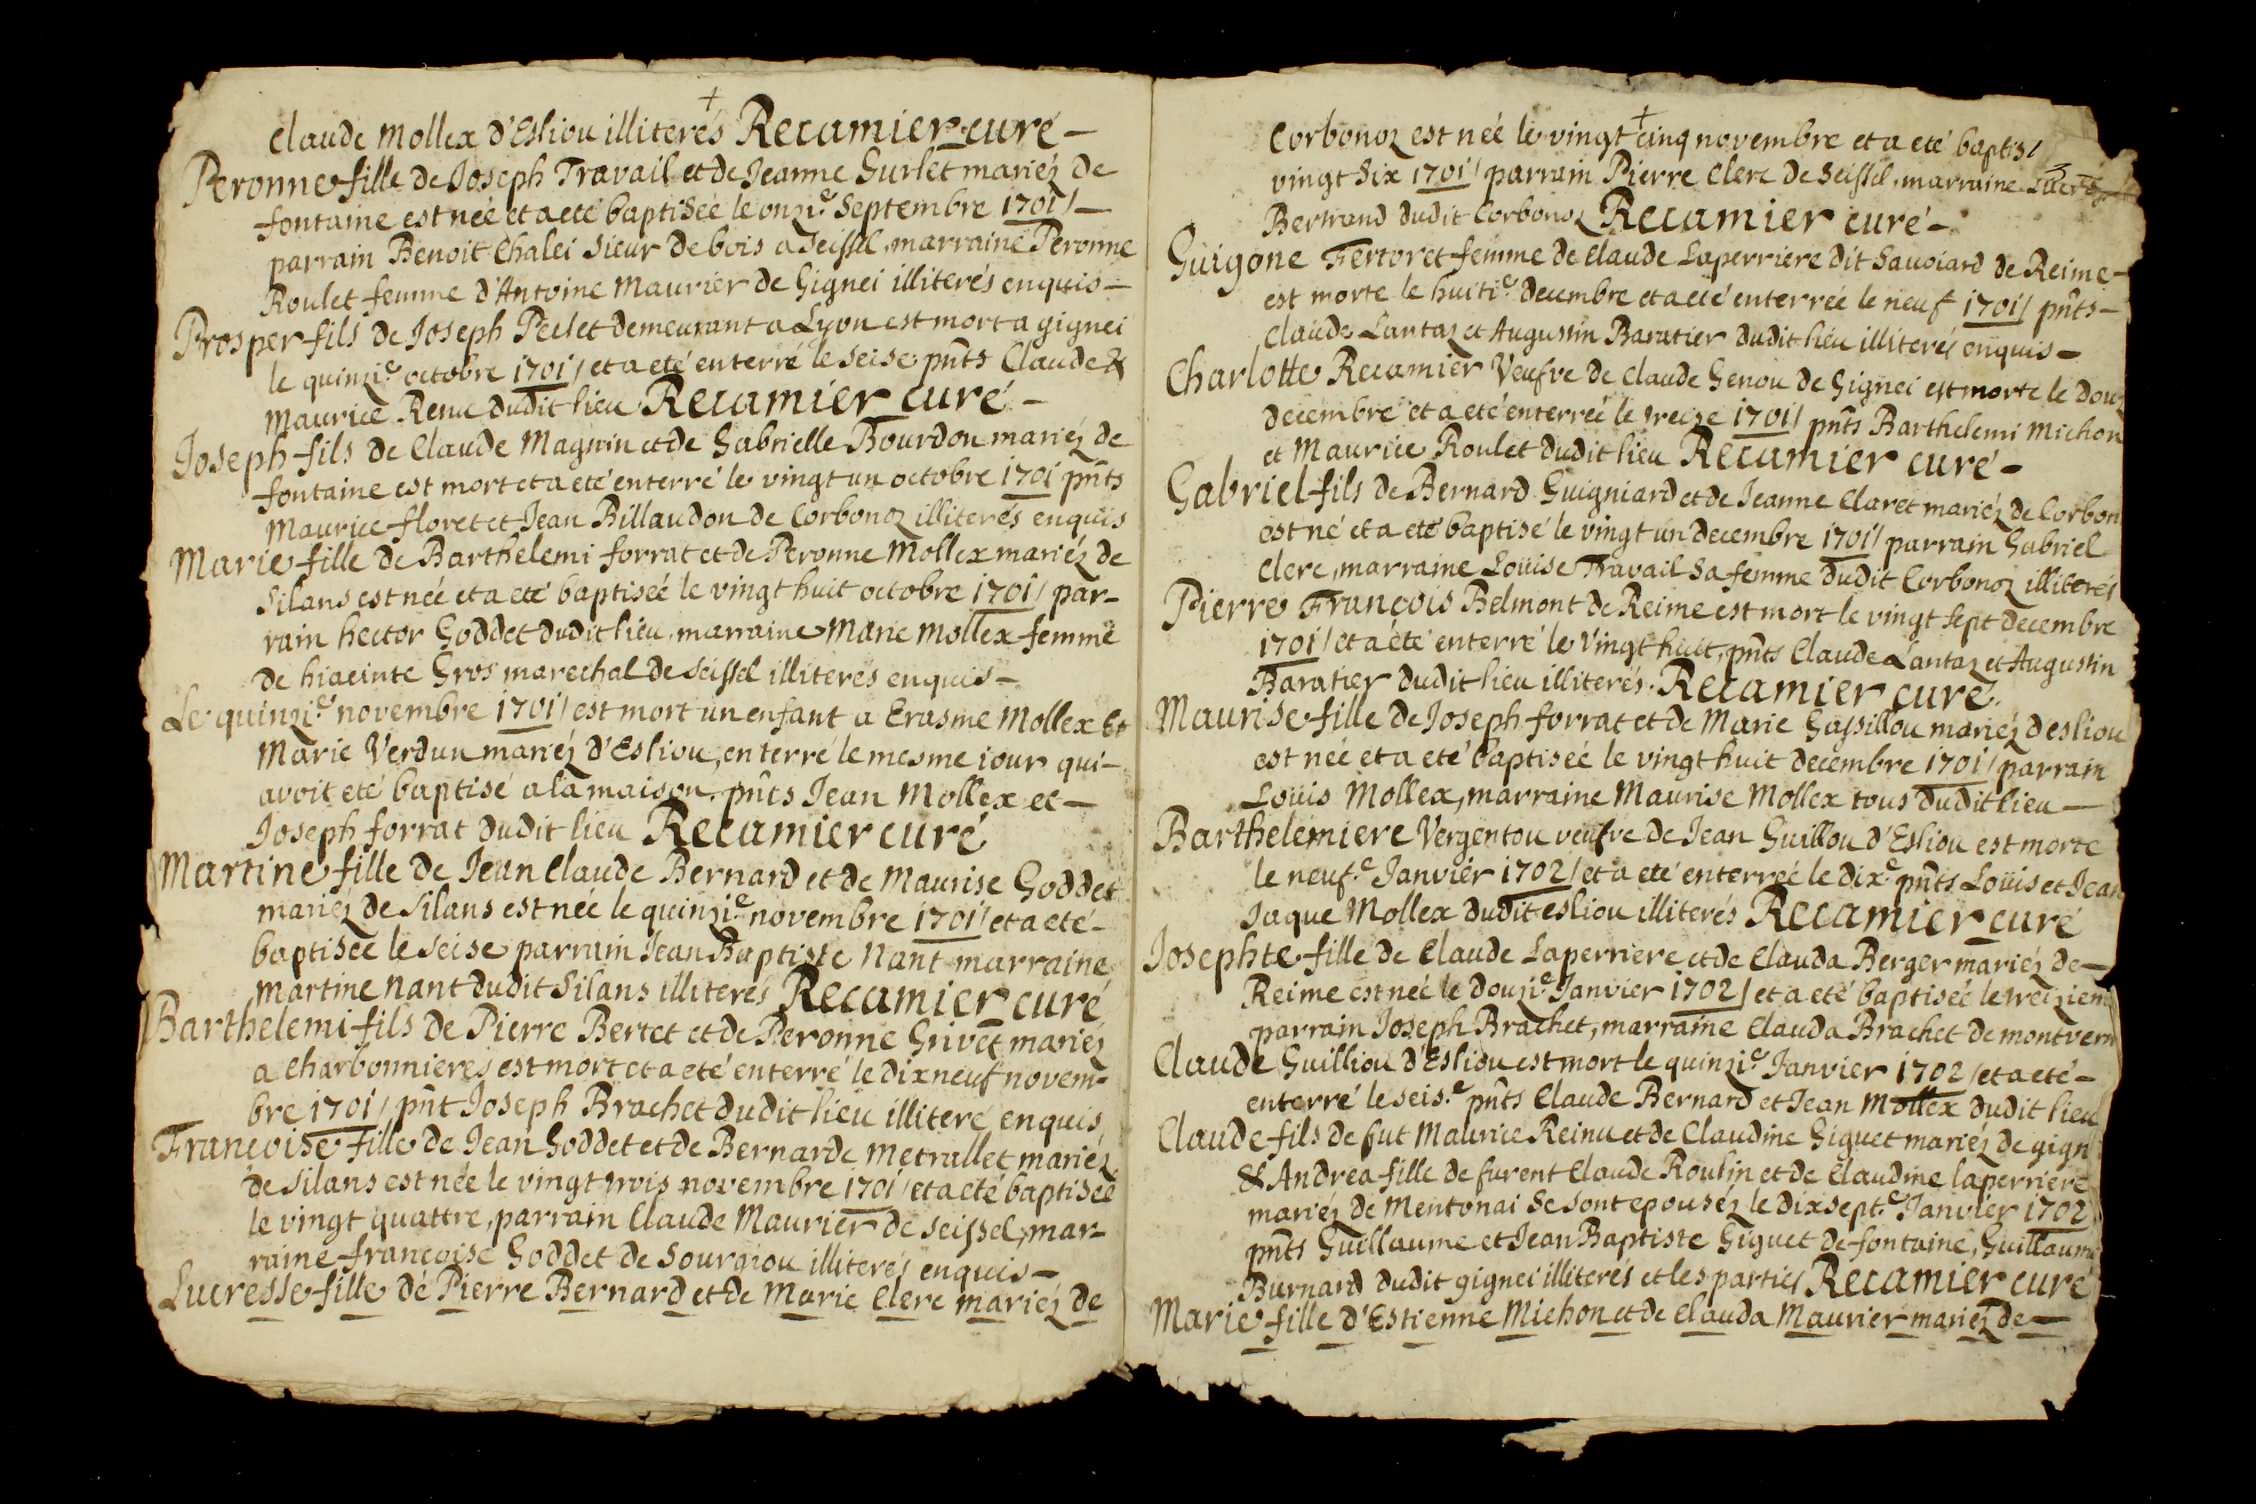 +
Claude Mollex d'Esliou illiterés Recamier curé –
Peronne fille de Joseph Travail et de Jeanne Gurlet mariéz de
fontaine est née et a eté baptisée le onzi.e Septembre 1701 / –
parrain Benoit Chalei Sieur de bois a Seissel, marraine Peronne
Roulet femme d'Antoine Maurier de Gignei illiterés enquis –
Prosper fils de Joseph Peclet demeurant a Lyon est mort a gignei
le quinzi.e octobre 1701 / et a eté enterré le seise pñts Claude &
Maurice Renu dudit lieu Recamier curé –
Joseph fils de Claude Magnin et de Gabrielle Bourdon mariéz de
fontaine est mort et a eté enterré le vingt un octobre 1701 pñts
Maurice floret et Jean Billaudon de Corbonoz illiterés enquis
Marie fille de Barthelemi forrat et de Peronne Mollex mariéz de
Silans est née et a eté baptiseé le vingt huit octobre 1701 / par-
rain hector Goddet dudit lieu, marraine Marie Mollex femme
de hiacinte Gros marechal de Seissel illiterés enquis –
Le quinzi.e novembre 1701 / est mort un enfant a Erasme Mollex Et
Marie Verdun mariéz d'Esliou, enterré le mesme iour qui –
avoit eté baptisé a la maison. pñts Jean Mollex et –
Joseph forrat dudit lieu Recamier curé
Martine fille de Jean Claude Bernard et de Maurise Goddet
mariéz de Silans est née le quinzi.e novembre 1701 / et a eté –
baptisée le seise parrain Jean Baptiste Nant marraine
Martine Nant dudit Silans illiterés Recamier curé
Barthelemi fils de Pierre Bertet et de Peronne Grivet mariéz
a Charbonnieres est mort et a eté enterré le dixneuf novem-
bre 1701 / pñt Joseph Brachet dudit lieu illiteré enquis
Françoise fille de Jean Goddet et de Bernarde Metrallet mariéz
de Silans est née le vingt trois novembre 1701 / et a eté baptisée
le vingt quattre, parrain Claude Maurier de Seissel, mar-
raine françoise Goddet de Sourgiou illiterés enquis –
Lucresse fille de Pierre Bernard et de Marie Clerc mariéz de
+
Corbonoz est née le vingt cinq novembre et a eté baptis
vingt Six 1701 / parrain Pierre Clerc de Seissel, marraine
Bertrand dudit Corbonoz Recamier curé –
Guigone Fertoret femme de Claude Laperriere dit Savoiard de Reime –
est morte le huiti.e decembre et a eté enterrée le neuf 1701 / pñts –
Claude Lantaz et Augustin Baratier dudit lieu illiterés enquis –
Charlotte Recamier Veufve de Claude Genou de Gignei est morte le douz
decembre et a eté enterreé le treize 1701 / pñts Barthelemi Michon
et Maurice Roulet dudit lieu Recamier curé –
Gabriel fils de Bernard Guigniard et de Jeanne Claret mariéz de Corbon
est né et a eté baptisé le vingt un decembre 1701 / parrain Gabriel
Clerc, marraine Loüise Travail Sa femme dudit Corbonoz illiterés
Pierre François Belmont de Reime est mort le vingt sept decembre
1701 / et a été enterré le Vingt huit, pñts Claude Lantaz et Augustin
Baratier dudit lieu illiterés. Recamier curé.
Maurise fille de Joseph forrat et de Marie Gassillou mariéz d'esliou
est née et a eté baptiseé le vingt huit decembre 1701 / parrain
Loüis Mollex, marraine Maurise Mollex tous dudit lieu –
Barthelemiere Vergentou veufve de Jean Guillou d'Esliou est morte
le neuf.e Janvier 1702 / et a eté enterreé le dix.e pñts Loüis et Jean
Jaque Mollex dudit esliou illiterés Recamier curé
Josephte fille de Claude Laperriere et de Clauda Berger mariéz de –
Reime est neé le douzi.e Janvier 1702 / et a eté baptisée le treiziem
parrain Joseph Brachet, marraine Clauda Brachet de montvern
Claude Guilliou d'Esliou est mort le quinzi.e Janvier 1702 / et a eté –
enterré le seis.e pñts Claude Bernard et Jean Mollex dudit lieu
Claude fils de fut Maurice Reinu et de Claudine Giguet mariéz de gign
& Andrea fille de furent Claude Roulin et de Claudine laperriere
mariéz de Mentonai Se sont epouséz le dixsept.e Janvier 1702
pñts Guillaume et Jean Baptiste Giguet de fontaine, Guillaume
Burnard dudit gignei illiterés et les parties Recamier curé
Marie fille d'Estienne Michon et de Clauda Maurier mariéz de –